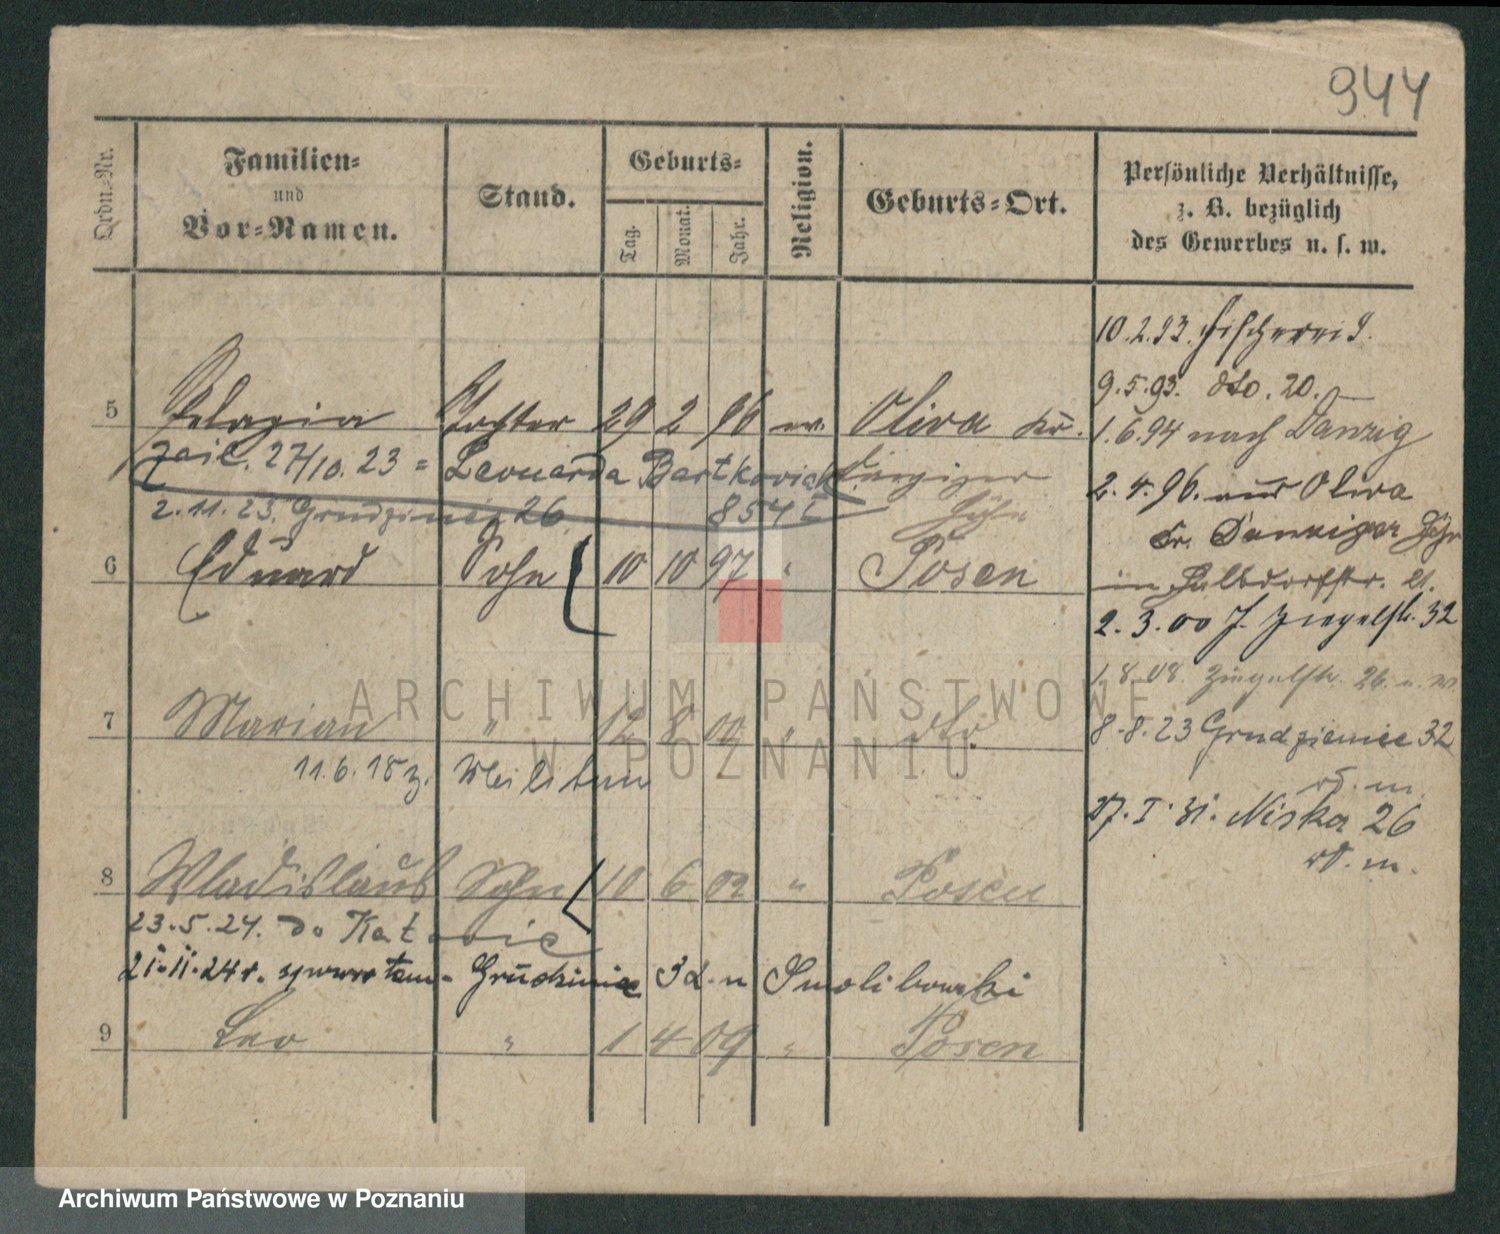 944
Ordn.-Nr.
Familien-
und
Vor-Namen.
Stand.
Geburts-
Tag.
Monat.
Jahr.
Religion.
Geburts-Ort.
Persönliche Verhältnisse,
z. B. bezüglich
des Gewerbes u. s. w.
10.2.93. Fischerei 9.
9.5.93. dto. 20.
5 Pelagia Tochter 29 2 96 Oliva Kr.
1.6.94 nach Danzig
27/10.23 = Leonarda Danziger
2.4.96. aus Oliva
2.11.23. Grudzieniec 26 854 Höhe
Kr. Danziger Höhe
6 Eduard Sohn 10 10 97 " Posen
2.3.00 Ziegelstr. 32
1.8.08. Ziegelstr. 26
7 Marian " 12 8 00 " dto.
8.8.23 Grudzieniec 32
11.6.18 z. Militär
17.I.31. Niska 26
8 Wladislaus Sohn 10 6 02 " Posen
23.5.24. do
21.II.24 r. Grudzieniec 32
9 Leo " 1 4 09 " Posen
ARCHIWUM PAŃSTWOWE
W POZNANIU
Archiwum Państwowe w Poznaniu